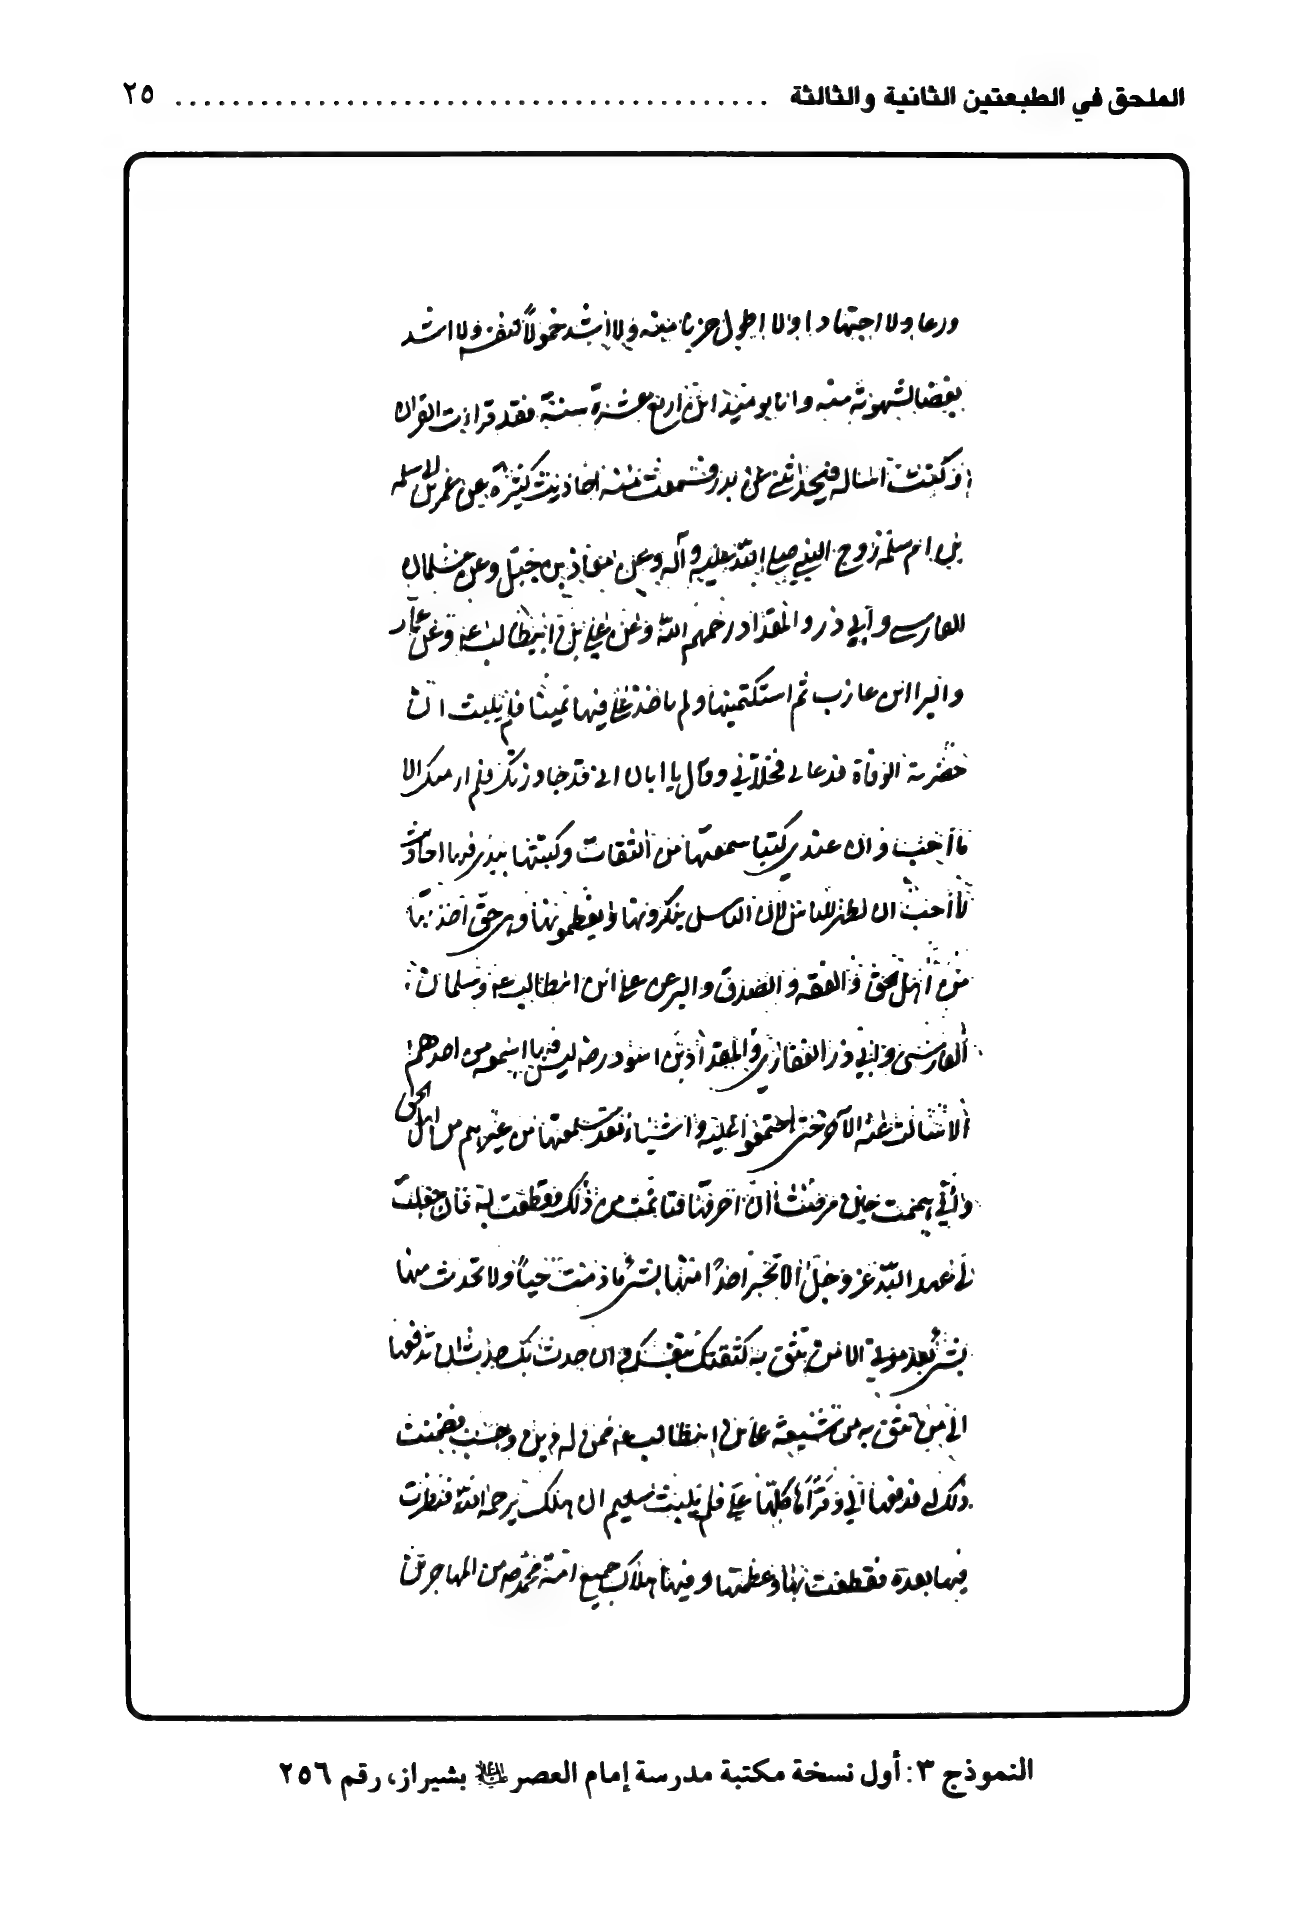 الملحق في الطبعتين الثانية والثالثة ........................................ ٢٥
ورعا ولا اجتهادا ولا اطول حزنا منه ولا اشد خمولا لنفسه ولا اشد
بغضا لشهوته منه وانا يومئذ ابن اربع عشرة سنة فقد قرات القران
وكنت اساله فيحدثني عن بدر فسمعت منه احاديث كثيرة عن عمر بن ابي سلمه
بن ام سلمة زوج النبي صلى الله عليه وآله وعن معاذ بن جبل وعن سلمان
الفارسي وابي ذر والمقداد رحمهم الله وعن علي بن ابيطالب ع وعن عمار
والبرا ابن عازب ثم استكتمنيها ولم ياخذ علي فيها يمينا فلم يلبث ان
حضرته الوفاة فدعاني فخلا بي وقال يا ابان اني قد جاورتك فلم ار منك الا
ما احب وان عندي كتبا سمعتها من الثقات وكتبتها بيدي فيها احاديث
لا احب ان تظهر للناس لان الناس ينكرونها ويعظمونها وهي حق اخذتها
من اهل الحق والفقه والصدق والبر عن علي ابن ابيطالب ع وسلمان
الفارسي وابي ذر الغفاري والمقداد بن اسود رض ليس فيها اسمعه من احدهم
الا سالت عنه الآخر حتى اجتمعوا عليه واشياء بعد سمعتها من غيرهم من اهل الحق
واني هممت حين مرضت ان احرقها فتاثمت من ذلك وقطعت به فان جعلت
لي عهد الله عز وجل ان لا تخبر احدا منها بشيء ما دمت حيا ولا تحدث منها
بشيء بعد موتي الا من تثق به كثقتك بنفسك وان حدث بك حدث ان تدفعها
الى من تثق به من شيعة علي بن ابيطالب ع ممن له دين وحسب فضمنت
ذلك له فدفعها الي وقراها كلها علي فلم يلبث سليم ان هلك يرحمه الله فنظرت
فيها بعده فقطعت بها وعظمتها وفيها هلاك جميع امة محمد ص من المهاجرين
النموذج ٣: أول نسخة مكتبة مدرسة إمام العصر عليه السلام بشيراز، رقم ٢٥٦